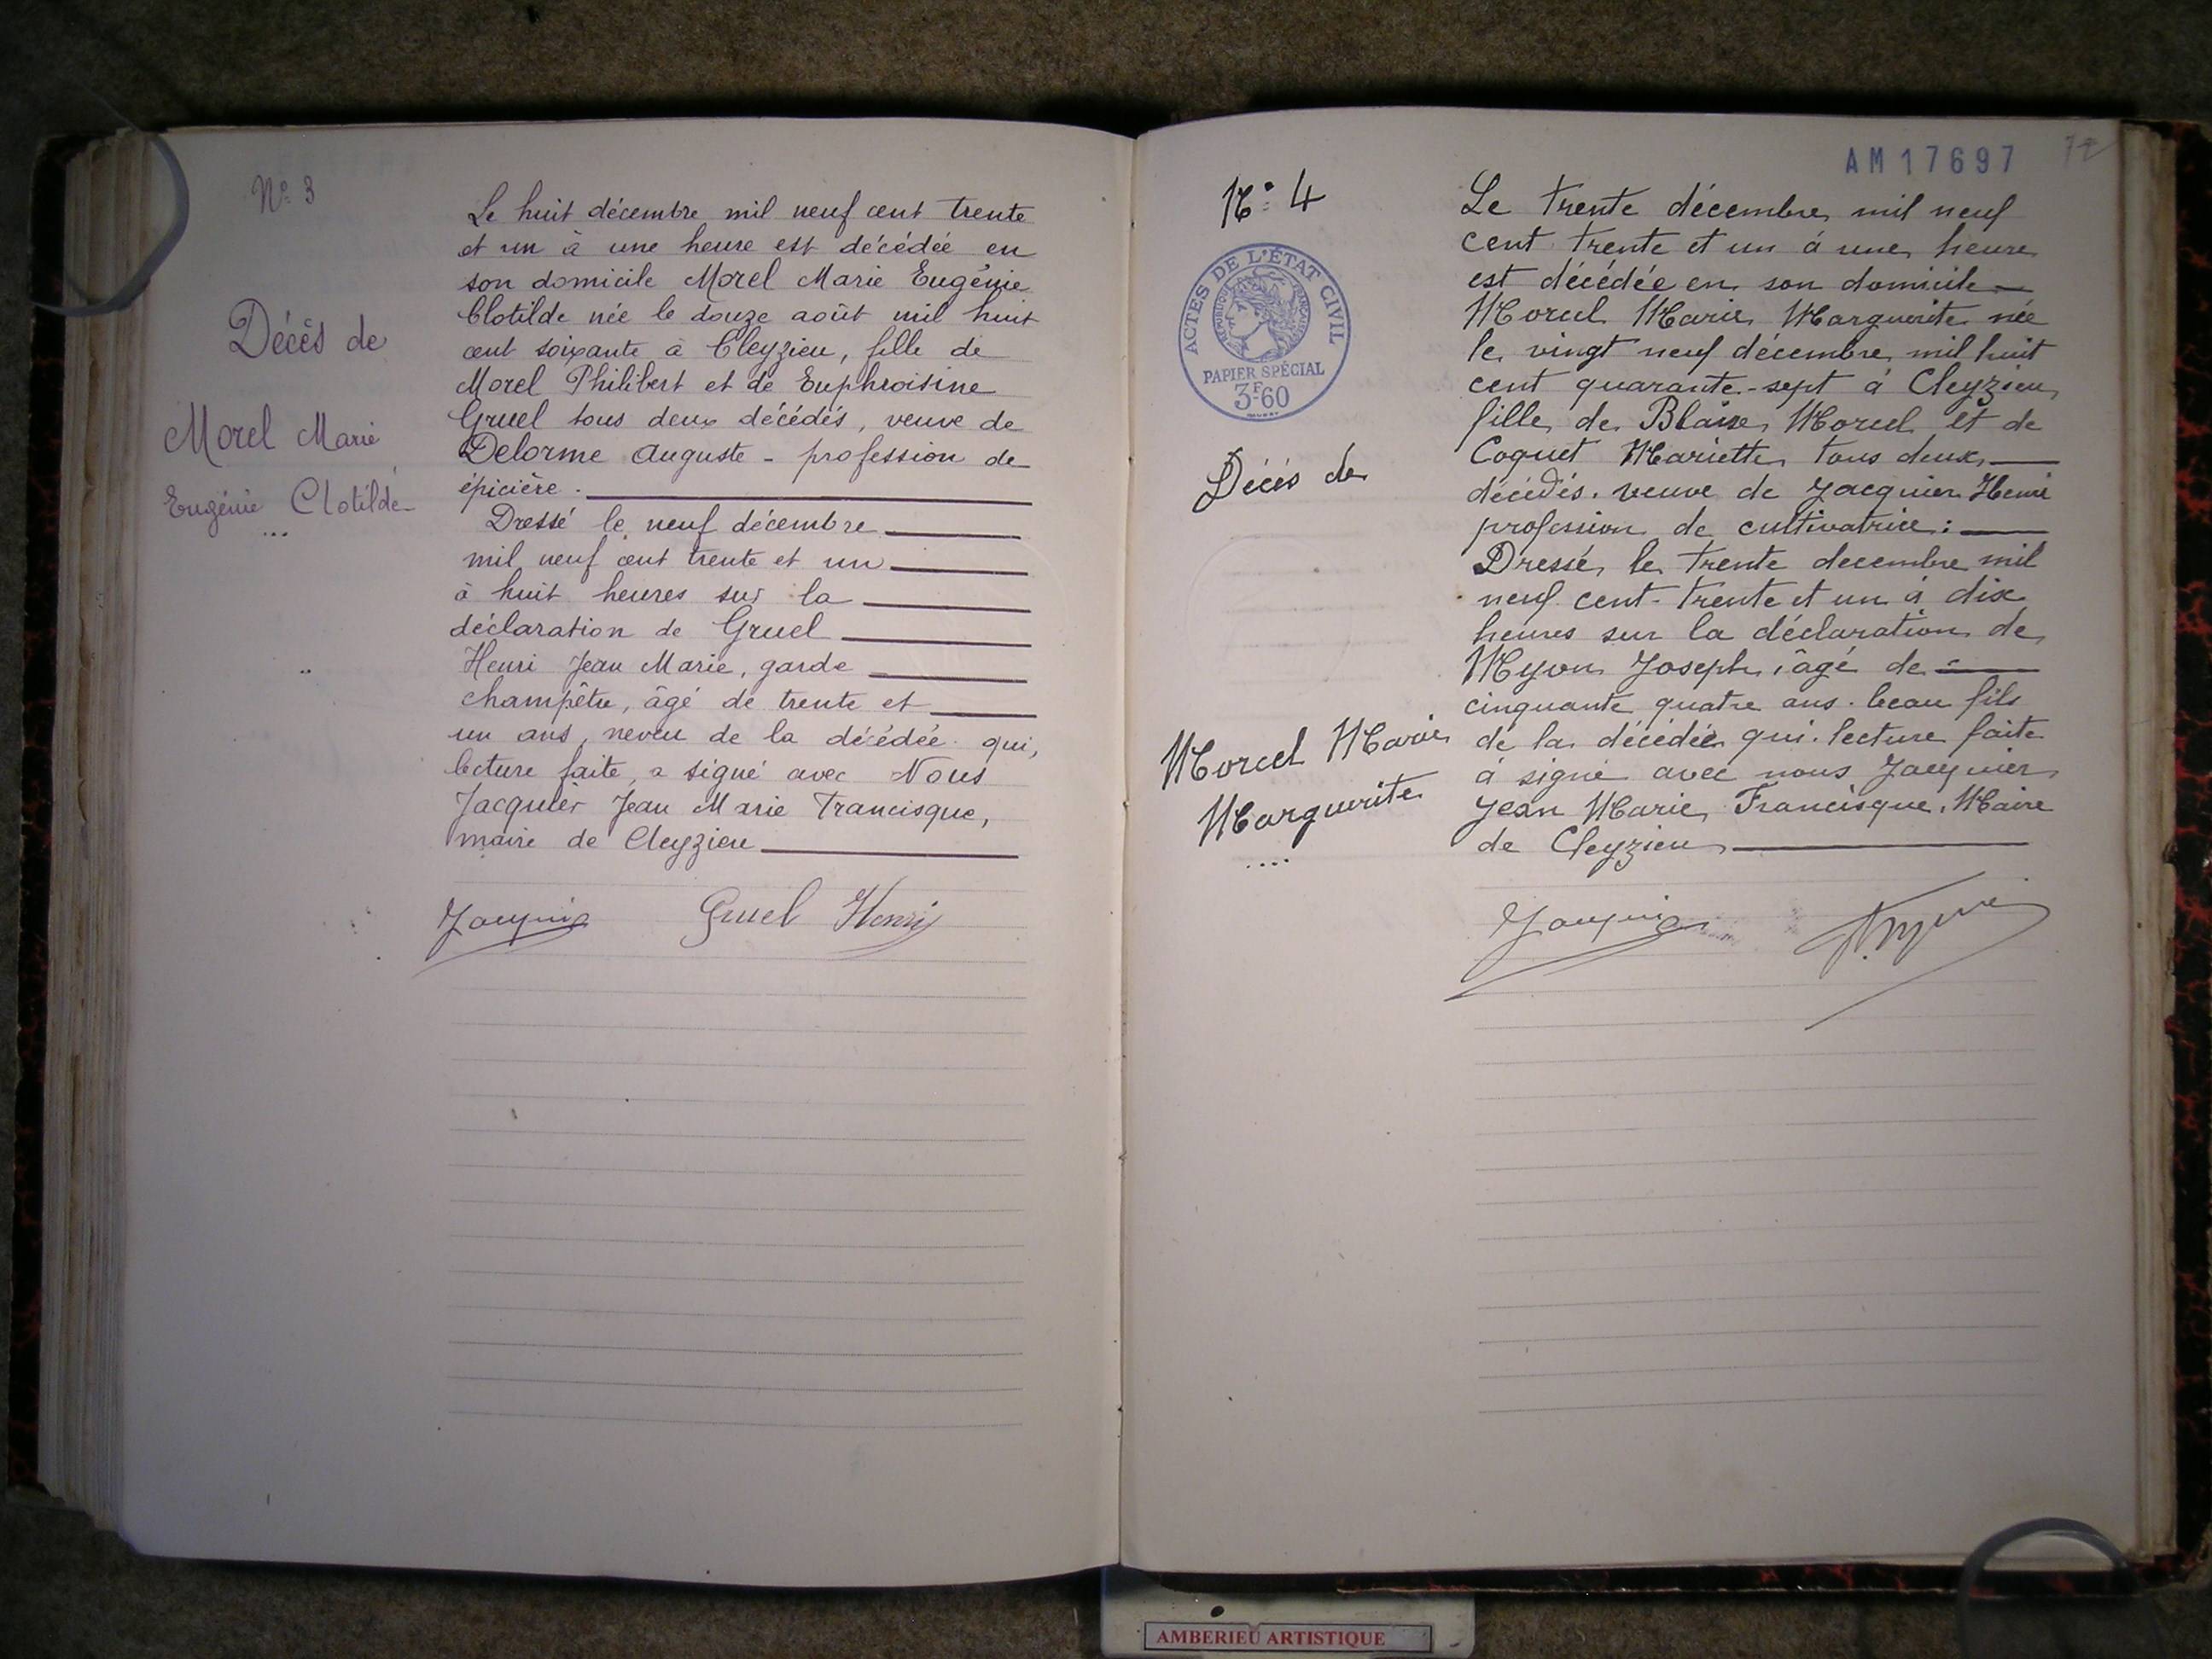 N° 3
Décès de
Morel Marie
Eugénie Clotilde
Le huit décembre mil neuf cent trente
et un à une heure est décédée en
son domicile Morel Marie Eugénie
Clotilde née le douze août mil huit
cent soixante à Cleyzieu, fille de
Morel Philibert et de Euphroisine
Gruel tous deux décédés, veuve de
Delorme Auguste - profession de
épicière.
Dressé le neuf décembre
mil neuf cent trente et un
à huit heures sur la
déclaration de Gruel
Henri Jean Marie, garde
champêtre, âgé de trente et
un ans, neveu de la décédée qui,
lecture faite, a signé avec Nous
Jacquier Jean Marie Francisque,
maire de Cleyzieu
Jacquier Gruel Henri
AM17697
72
N° 4
ACTES DE L'ÉTAT CIVIL
RÉPUBLIQUE FRANÇAISE
PAPIER SPÉCIAL
3F60
Décès de
Morel Marie
Marguerite
Le trente décembre mil neuf
cent trente et un à une heure
est décédée en son domicile
Morel Marie Marguerite née
le vingt neuf décembre mil huit
cent quarante-sept à Cleyzieu
fille de Blaise Morel et de
Coquet Mariette tous deux
décédés. veuve de Jacquier Henri
profession de cultivatrice:
Dressé le trente decembre mil
neuf cent trente et un à dix
heures sur la déclaration de
Myon Joseph, âgé de
cinquante quatre ans. beau fils
de la décédée qui. lecture faite
à signé avec nous Jacquier
Jean Marie Francisque, Maire
de Cleyzieu
Jacquier
AMBERIEU ARTISTIQUE